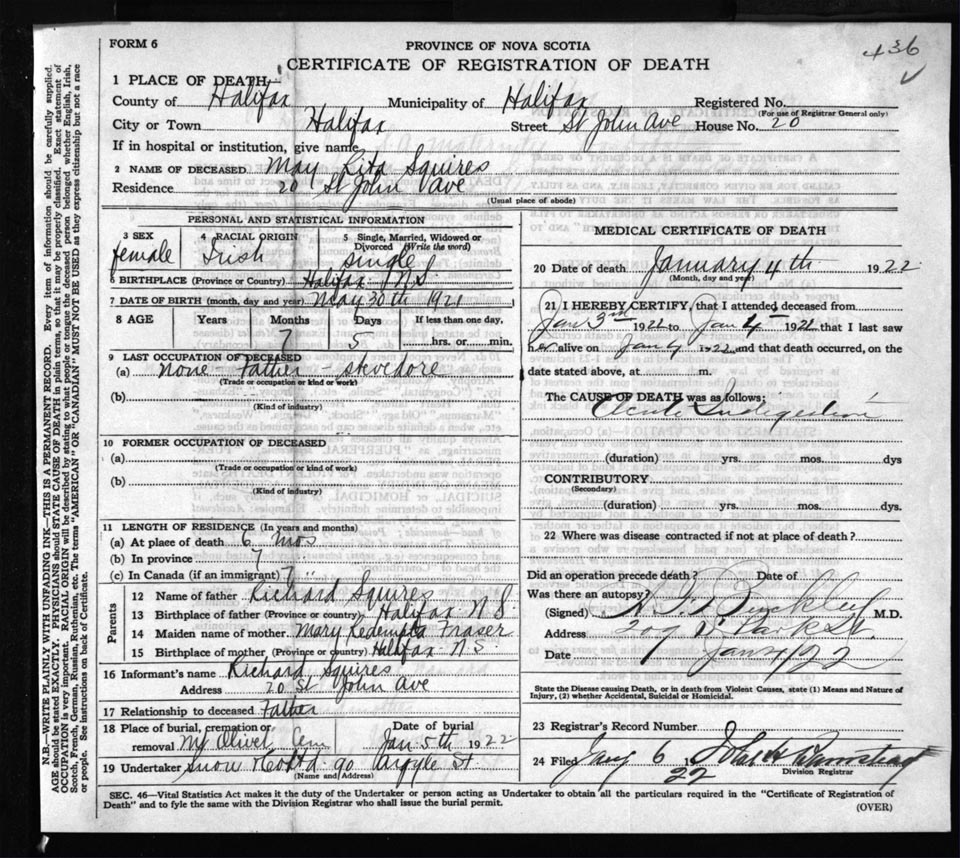 436
FORM 6
PROVINCE OF NOVA SCOTIA
CERTIFICATE OF REGISTRATION OF DEATH
1 PLACE OF DEATH
County of Halifax Municipality of Halifax Registered No.
(For use of Registrar General only)
City or Town Halifax Street St John Ave House No. 20
If in hospital or institution, give name
2 NAME OF DECEASED May Rita Squires
Residence 20 St John Ave
(Usual place of abode)
PERSONAL AND STATISTICAL INFORMATION
3 SEX 4 RACIAL ORIGIN 5 Single, Married, Widowed or Divorced (Write the word)
female Irish single
6 BIRTHPLACE (Province or Country) Halifax N.S.
7 DATE OF BIRTH (month, day and year) May 30th 1921
8 AGE Years Months Days If less than one day,
7 5 hrs. or min.
9 LAST OCCUPATION OF DECEASED
(a) none - Father - stevedore
(Trade or occupation or kind or work)
(b)
(Kind of industry)
10 FORMER OCCUPATION OF DECEASED
(a)
(Trade or occupation or kind of work)
(b)
(Kind of industry)
11 LENGTH OF RESIDENCE (In years and months)
(a) At place of death 6 mos
(b) In province 7 "
(c) In Canada (if an immigrant) 7 "
Parents
12 Name of father Richard Squires
13 Birthplace of father (Province or country) Halifax N.S.
14 Maiden name of mother Mary Redempta Fraser
15 Birthplace of mother (Province or country) Halifax N.S.
16 Informant's name Richard Squires
Address 20 St John Ave
17 Relationship to deceased Father
18 Place of burial, cremation or removal Mt Olivet Cem Date of burial Jan 5th 1922
19 Undertaker Snow & Co Ltd 90 Argyle St
(Name and Address)
MEDICAL CERTIFICATE OF DEATH
20 Date of death January 4th 1922
(Month, day and year)
21 I HEREBY CERTIFY, that I attended deceased from
Jan 3rd 1922 to Jan 4 1922 that I last saw
her alive on Jan 4 1922 and that death occurred, on the
date stated above, at m.
The CAUSE OF DEATH was as follows:
Acute Indigestion
(duration) yrs. mos. dys
CONTRIBUTORY
(Secondary)
(duration) yrs. mos. dys.
22 Where was disease contracted if not at place of death?
Did an operation precede death? Date of
Was there an autopsy?
(Signed) M.D.
Address 209 Park St.
Date Jan 4/22
State the Disease causing Death, or in death from Violent Causes, state (1) Means and Nature of
Injury, (2) whether Accidental, Suicidal or Homicidal.
23 Registrar's Record Number
24 Filed Jany 6 1922 John H
Division Registrar
SEC. 46—Vital Statistics Act makes it the duty of the Undertaker or person acting as Undertaker to obtain all the particulars required in the "Certificate of Registration of
Death" and to fyle the same with the Division Registrar who shall issue the burial permit.
(OVER)
N.B.—WRITE PLAINLY WITH UNFADING INK—THIS IS A PERMANENT RECORD. Every item of information should be carefully supplied.
AGE should be stated EXACTLY. PHYSICIANS should STATE CAUSE OF DEATH in plain terms, so that it may be properly classified. Exact statement of
OCCUPATION is very important. RACIAL ORIGIN will be described by stating to what people or tongue the deceased person belonged whether English, Irish,
Scotch, French, German, Russian, Ruthenian, etc. The terms "AMERICAN" OR "CANADIAN" MUST NOT BE USED as they express citizenship but not a race
or people. See instructions on back of Certificate.